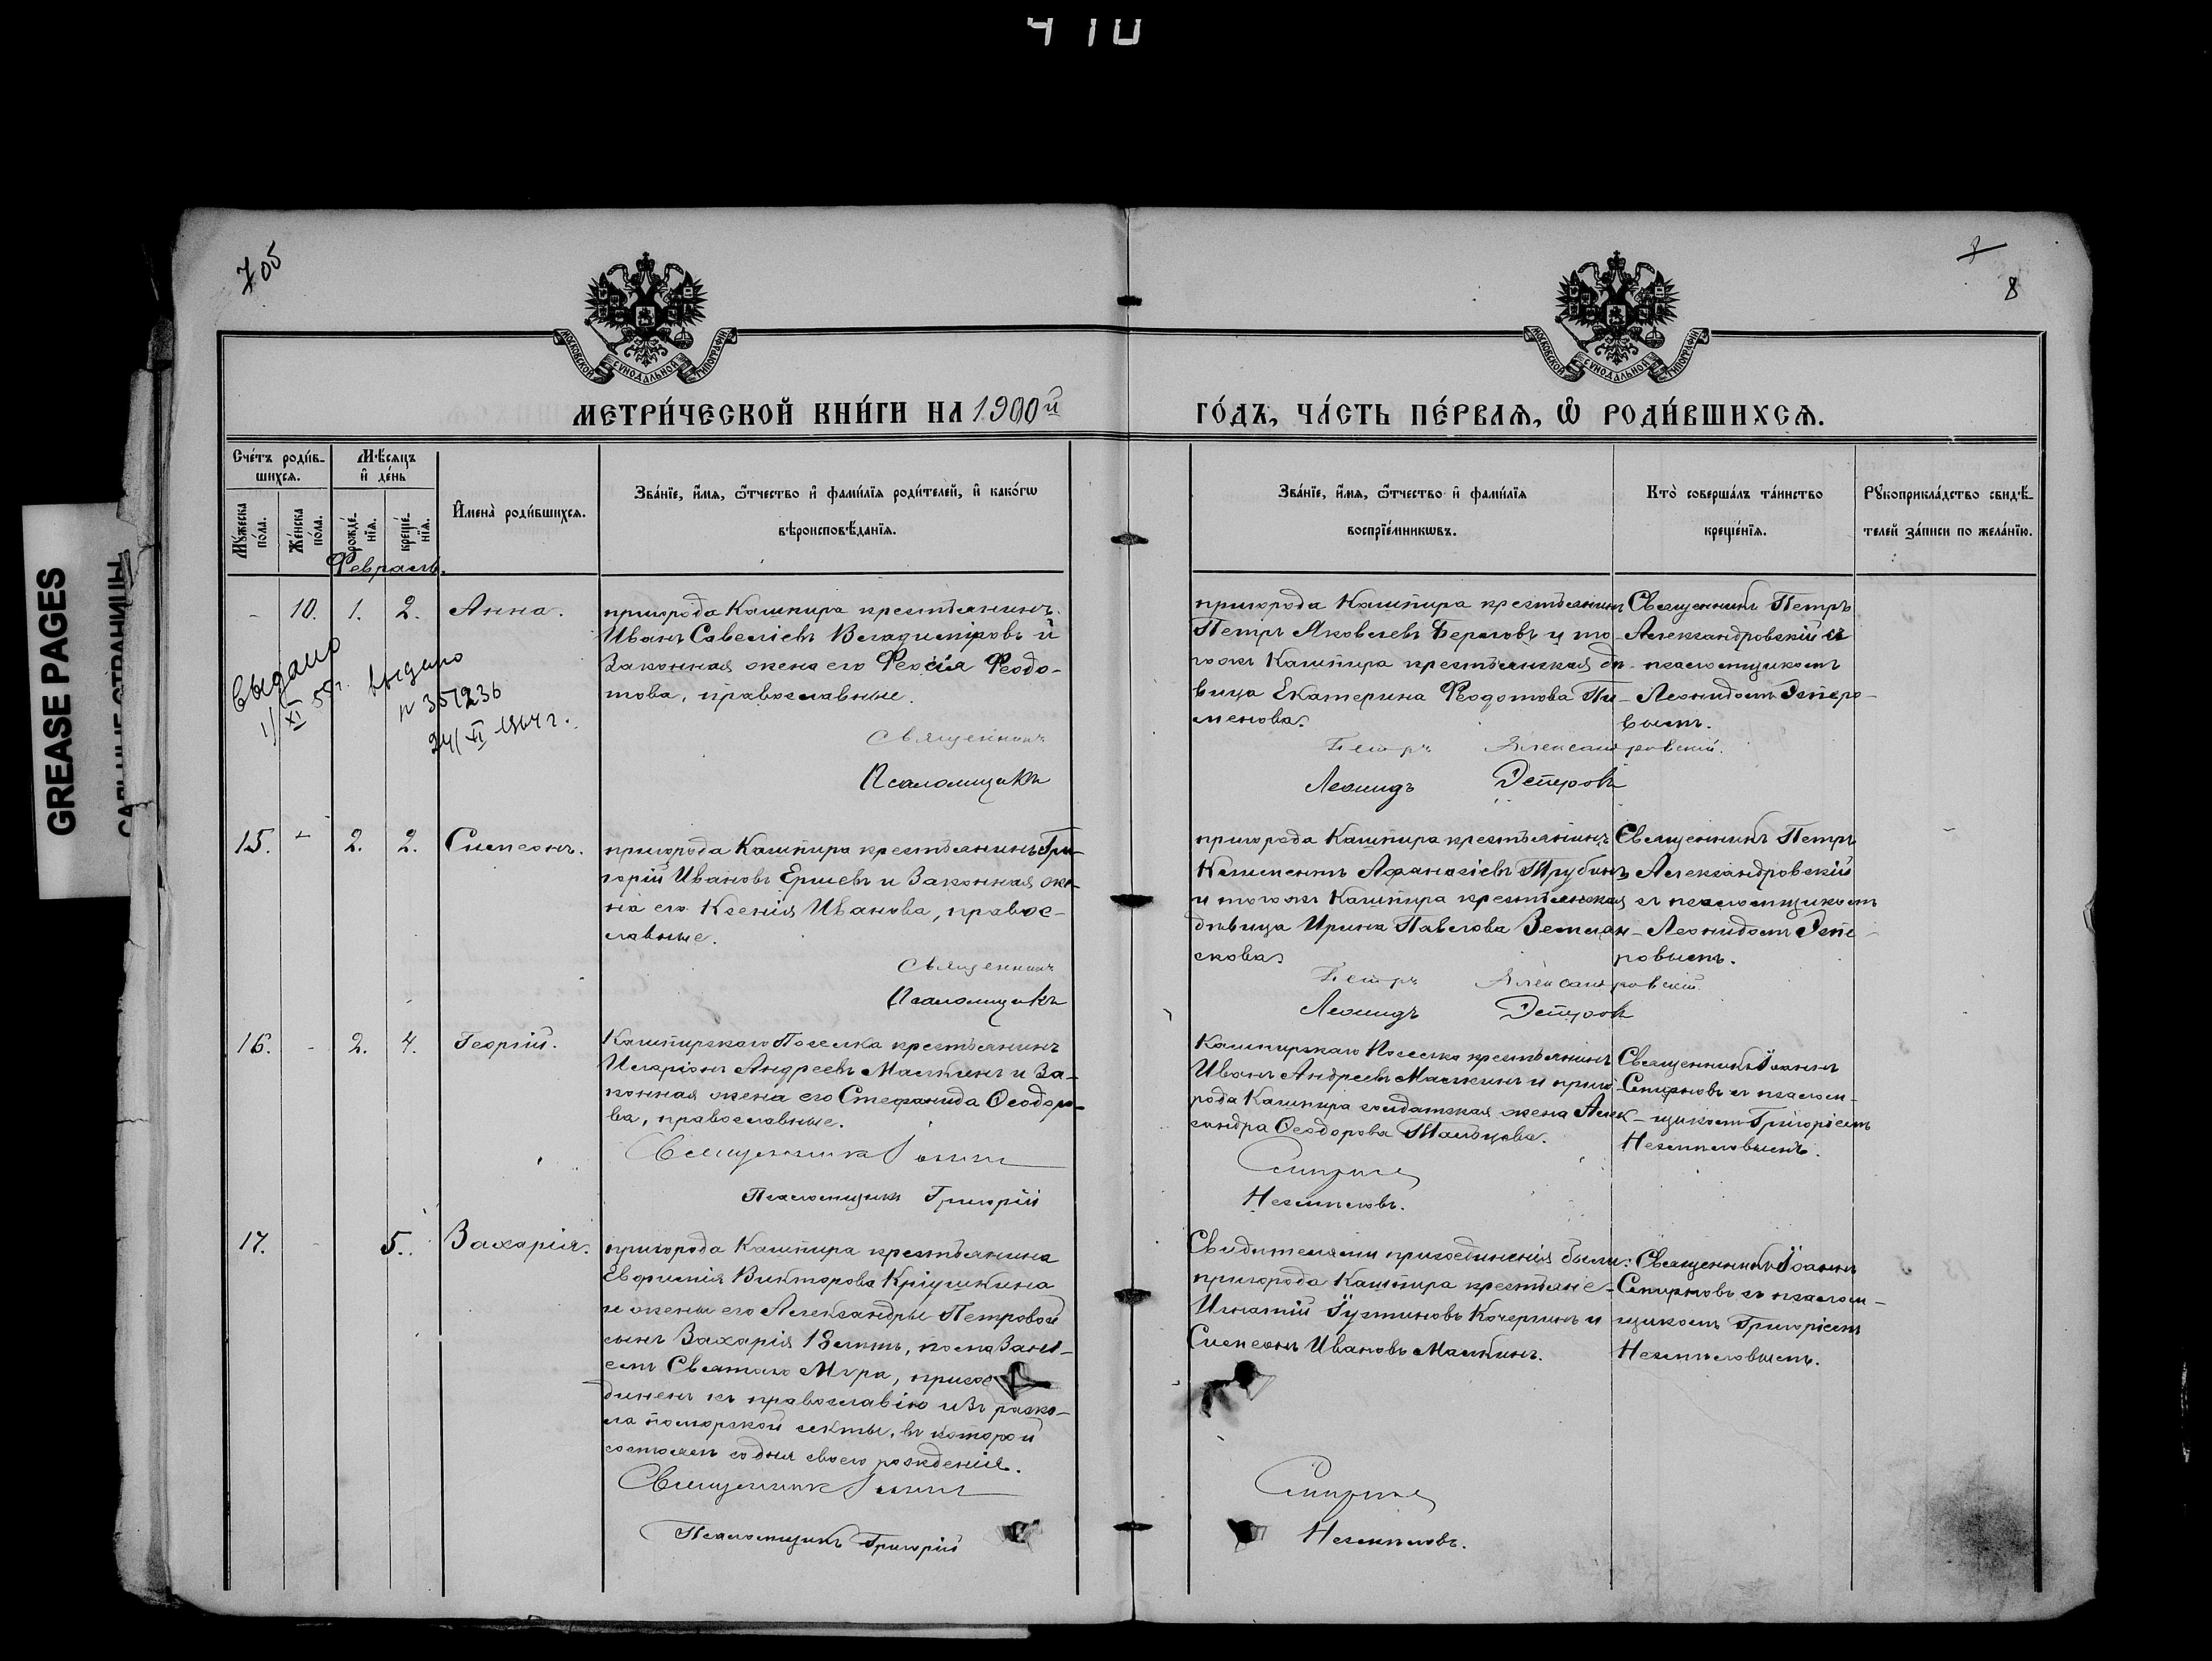 410
705
7
8
МОСКОВСКОЙ СѴНОДАЛЬНОЙ ТИПОГРАФІИ
МОСКОВСКОЙ СѴНОДАЛЬНОЙ ТИПОГРАФІИ
МЕТРИ́ЧЕСКОЙ КНИ́ГИ НА 1900й
ГО́ДЪ, ЧА́СТЬ ПЕ́РВАѦ, Ѽ РОДИ́ВШИХСѦ.
Сче́тъ роди́в-
шихсѧ.
Мѣ́сѧцъ
и҆ де́нь
Мꙋ́жеска
по́ла.
Же́нска
по́ла.
рожде́-
нїѧ.
креще́-
нїѧ.
И҆мена̀ роди́вшихсѧ.
Зва́нїе, и҆́мѧ, ѻ҆́тчество и҆ фами́лїѧ роди́телей, и҆ како́гѡ
вѣроисповѣ́данїѧ.
Зва́нїе, и҆́мѧ, ѻ҆́тчество и҆ фами́лїѧ
воспрїе́мникѡвъ.
Кто̀ соверша́лъ та́инство
креще́нїѧ.
Рꙋкоприкла́дство свидѣ́-
телей за́писи по жела́нїю.
Февраль.
- 10. 1. 2. Анна.
пригорода Кашпира крестьянинъ
Иванъ Савеліевъ Владиміровъ и
законная жена его Феосія Феодо-
това, православные.
Священникъ
Псаломщикъ
выдано
1/XI 55г.
выдано
№ 351236
24/XI 1964 г.
пригорода Кашпира крестьянин
Петръ Яковлевъ Береговъ и то-
гожъ Кашпира крестьянская дѣ-
вица Екатерина Феодотова Пи-
менова.
Петръ Александровскій.
Леонидъ Эсперовъ
Священникъ Петръ
Александровскій съ
псаломщикомъ
Леонидомъ Эсперо-
вымъ.
15. - 2. 2. Симеонъ.
пригорода Кашпира крестьянинъ Гри-
горій Ивановъ Ершевъ и законная же-
на его Ксенія Иванова, право-
славные.
Священникъ
Псаломщикъ
пригорода Кашпира крестьянинъ
Климентъ Афанасіевъ Трубинъ
и тогожъ Кашпира крестьянская
дѣвица Ирина Павлова Землян-
скова.
Петръ Александровскій.
Леонидъ Эсперовъ
Священникъ Петръ
Александровскій
съ псаломщикомъ
Леонидомъ Эспе-
ровымъ.
16. - 2. 4. Георгій.
Кашпирскаго Поселка крестьянинъ
Иларіонъ Андреевъ Маскинъ и за-
конная жена его Стефанида Ѳеодоро-
ва, православные.
Священникъ Іоаннъ
Псаломщикъ Григорій
Кашпирскаго Поселка крестьянинъ
Иванъ Андреевъ Маскинъ и приго-
рода Кашпира солдатская жена Алек-
сандра Ѳеодорова Мальцова.
Смирновъ
Несмѣловъ.
Священникъ Іоаннъ
Смирновъ съ псалом-
щикомъ Григоріемъ
Несмѣловымъ.
17. - 5. Захарія.
пригорода Кашпира крестьянина
Евфимія Викторова Кріушкина
и жены его Александры Петровой
сынъ Захарія 18 лѣтъ, помазані-
емъ Святаго Мѵра, присое-
диненъ къ православію изъ раско-
ла поморской секты, въ которой
состоялъ со дня своего рожденія.
Священникъ Іоаннъ
Псаломщикъ Григорій
Свидѣтелями присоединенія были:
пригорода Кашпира крестьяне
Игнатій Іустиновъ Кочергинъ и
Симеонъ Ивановъ Маскинъ.
Смирновъ
Несмѣловъ.
Священникъ Іоаннъ
Смирновъ съ псалом-
щикомъ Григоріемъ
Несмѣловымъ.
GREASE PAGES
САЛЬНЫЕ СТРАНИЦЫ